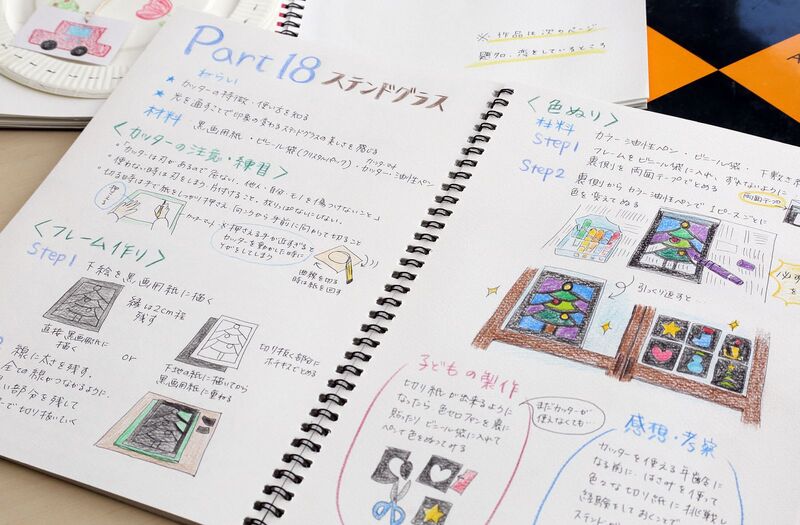 ※ 作品は次のページ
Part 18 ステンドグラス
ねらい
★ カッターの特徴・使い方を知る
★ 光を通すことで印象の変わるステンドグラスの美しさを感じる
材料 黒画用紙・ビニール袋(クリスタルパック)・カッター・油性ペン
カッターマット
<カッターの注意・練習>
"カッターは刃があるので危ない。他人・自分・モノを傷つけないこと"
使わない時は刃をしまう。片づけること。放りっぱなしにしない。
切る時は手で紙をしっかり押さえ 向こうから手前に向かって切ること
押さえる
カッターマット
※押さえる手が近すぎると
カッターを動かした時に
ケガをしてしまう
曲線を切る
時は紙を回す
<フレーム作り>
Step 1
下絵を黒画用紙に描く
縁は2cm程
残す
直接黒画用紙に
描く
or
下地の紙に描いてから
黒画用紙に重ねる
切り抜く部分に
ホチキスでとめる
線に太さを残す。
全ての線がつながるように、
い部分を残して
ーで切り抜いていく
<色ぬり>
材料 カラー油性ペン・ビニール袋・下敷き
Step 1 フレームをビニール袋に入れ、ずれないように
裏側を両面テープでとめる
両面テープ
Step 2 裏側からカラー油性ペンで1ピースごとに
色を変えてぬる
必ず
を
ひっくり返すと
子どもの製作
切り紙が出来るように
なったら 色セロファンを裏に
貼ったり ビニール袋に入れて
ペンで色をぬってみる
まだカッターが
使えなくても…
感想・考察
カッターを使える年齢に
なる前に、はさみを使って
色々な切り紙に挑戦し
経験をしておくことで
ステンド